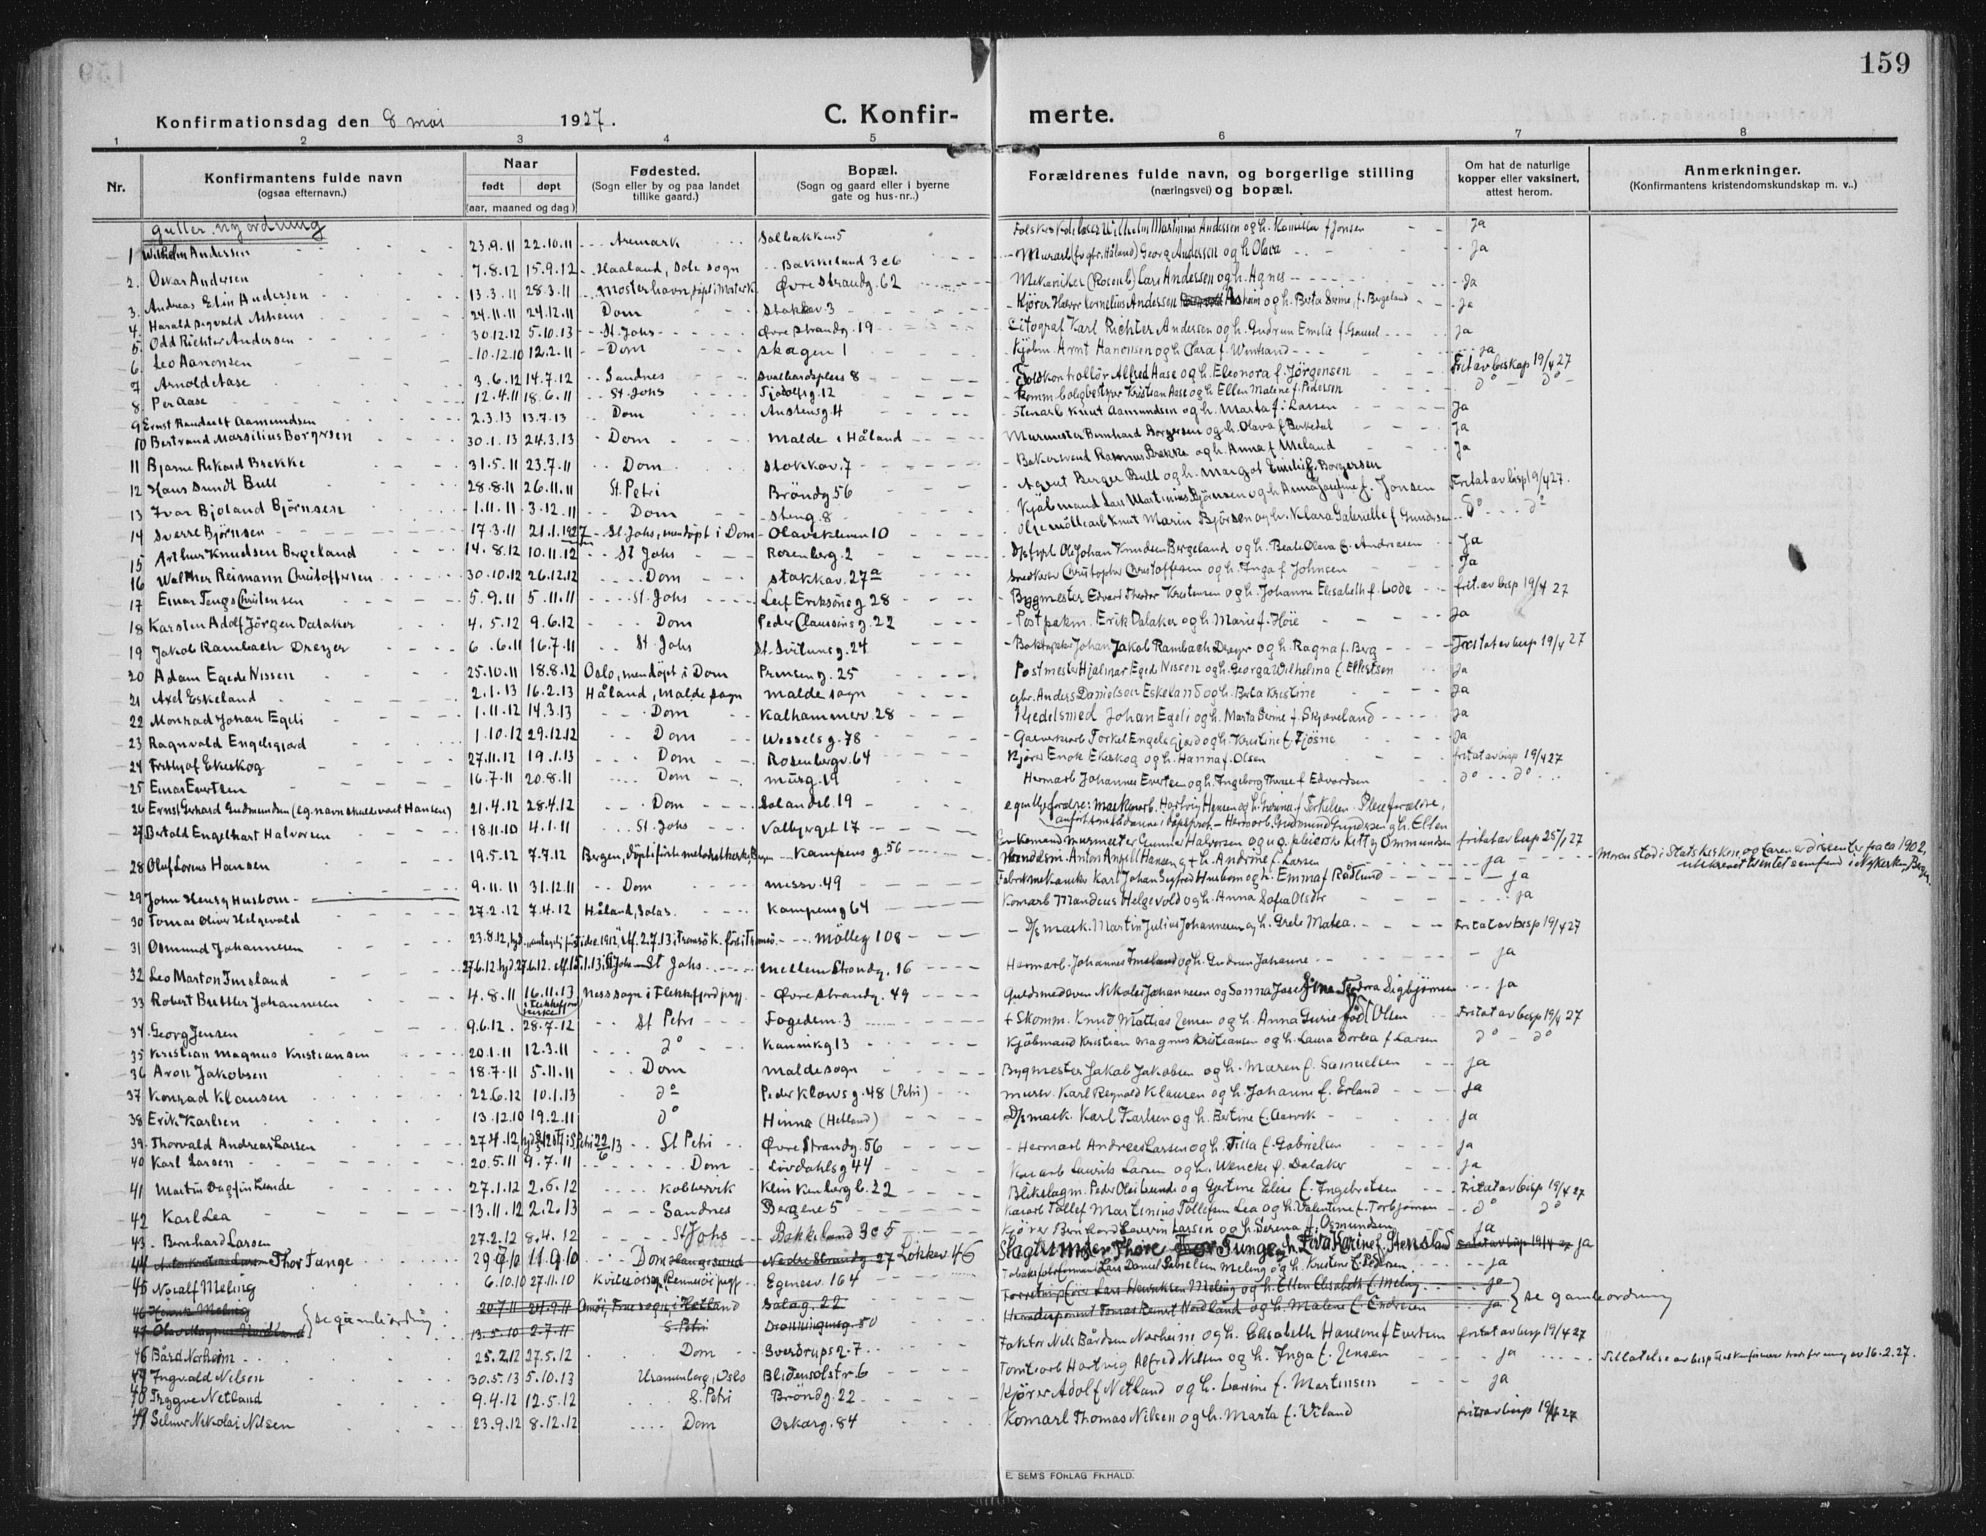 159
Konfirmationsdag den 8 mai 1927.
C. Konfir- merte.
1 2 3 4 5 6 7 8
Nr.
Konfirmantens fulde navn
(ogsaa efternavn.)
Naar
født døpt
(aar, maaned og dag)
Fødested.
(Sogn eller by og paa landet
tillike gaard.)
Bopæl.
(Sogn og gaard eller i byerne
gate og hus-nr.)
Forældrenes fulde navn, og borgerlige stilling
(næringsvei) og bopæl.
Om hat de naturlige
kopper eller vaksinert,
attest herom.
Anmerkninger.
(Konfirmantens kristendomskundskap m. v..)
Gutter. nyordning
1 Wilhelm Andersen 23.9.11 22.10.11 Aremark Solbakken 5 Wilhelm Martinius Andersen og h. Kamilla f. Jonsen Ja
2. Oskar Andersen 7.8.12 15.9.12 Haaland, Sola sogn Bakkeland 3c6 Murarb. Georg Andersen og h. Olava Ja
3. Andreas Elin Andersen 13.3.11 28.3.11 Mosterhavn Øvre Strandg. 62 Mekaniker (Rosenb.) Lars Andersen og h. Agnes Ja
4. Harald Sigvald Asheim 24.11.11 24.12.11 Dom Stokkav. 3 Kjører Kornelius Andersen Asheim og h. Berta Serine f. Bergeland Ja
5. Odd Richter Andersen 30.12.12 5.10.13 St. Johs Øvre Strandg. 19 Litograf Karl Richter Andersen og h. Gudrun Emilie f. Gausel Ja
6. Leo Aanonsen 10.12.10 12.2.11 Dom Skagen 1 Kjøbm. Arnt Hanonsen og h. Clara f. Wintland ja
7 Arnold Aase 3.6.12 14.7.12 Sandnes Svalbardsplass 8 Toldkontrollør Alfred Aase og h. Eleonora f. Jörgensen Fritat av biskap 19/4 27
8 Per Aase 12.4.11 18.6.11 St. Johs Tjodolfsg. 12 Kristian Aase og h. Ellen Malene f. Pedersen do do
9 Ernst Randulf Aamundsen 2.3.13 13.7.13 Dom Austensg. 4 Stenarb. Knut Aamundsen og h. Marta f. Larsen Ja
10 Bertrand Marsilius Borgersen 30.1.13 24.3.13 Dom Malde i Håland Murmester Bernhard Borgersen og h. Olava f. Birkedal Ja
11 Bjarne Rikard Brekke 31.5.11 23.7.11 Dom Stokkav. 7 Bakersvend Rasmus Brekke og h. Anna f. Meland Ja
12 Hans Sundt Bull 28.8.11 26.11.11 St. Petri Bröndg. 56 Agent Berger Bull og h. Margot Emilie f. Borgersen Fritat av bisp 19/4 27.
13 Ivar Bjoland Björnsen 1.11.11 3.12.11 Dom Steng. 8 Kjøbmand Lars Martinius Björnsen og h. Anna Josefine f. Jonsen do do
14 Sverre Björnsen 17.3.11 21.1.1927 St. Johs, men döpt i Dom Olavskleven 10 Knut Marin Björsen og h. Klara Gabrielle f. Gundersen
15 Arthur Knudsen Bergeland 14.8.12 10.11.12 St Johs Rosenberg. 2 Ole Johan Knudsen Bergeland og h. Beate Olava f. Andreasen Ja
16 Walther Reimann Christoffersen 30.10.12 26.12.12 Dom Stakkav. 27a Snedkerw. Christopher Christoffersen og h. Inga f. Johnsen Ja
17 Einar Tengs Christensen 5.9.11 5.11.11 St. Johs Leif Eriksöns g. 28 Bygmester Edvard Theodor Kristensen og h. Johanne Elisabeth f. Lode fritat av bisp 19/4 27
18 Karsten Adolf Jörgen Dalaker 4.5.12 9.6.12 Dom Peder Claussöns g. 22 Postpakm. Erik Dalaker og h. Marie f. Höie Ja
19 Jakob Rambach Dreyer 6.6.11 16.7.11 St. Johs St. Svituns g. 24 Boktrykker Johan Jakob Rambach Dreyer og h. Ragna f. Berg Fritat av bisp 19/4 27
20 Adam Egede Nissen 25.10.11 18.8.12 Oslo, men döpt i Dom Prinsen g. 25 Postmester Hjalmar Egede Nissen og h. Georga Wilhelmina f. Ellertsen Ja
21 Axel Eskeland 2.1.13 16.2.13 Håland, Malde sogn Malde sogn gbr. Anders Danielson Eskeland og h. Berta Kristine Ja
22 Monrad Johan Egeli 1.11.12 14.3.13 Dom Kalhammerv. 28 Kjedelsmed Johan Egeli og h. Marta Serine f. Skjæveland Ja
23 Ragnvald Engelsgjord 1.10.12 29.12.12 Dom Wessels g. 78 Torkel Engelsgjord og h. Kristine f. Tjösne Ja
24 Frithjof Ekeskog 27.11.12 19.1.13 Dom Rosenbergv. 64 Kjører Enok Ekeskog og h. Hanna f. Olsen fritat av bisp 19/4 27
25 Einar Evertsen 16.7.11 20.8.11 Dom Murg. 19 Hermarb. Johannes Evertsen og h. Ingeborg Thrine f. Edvardsen do do
26 Ernst Gerhard Gudmundsen (eg. navn skulde vært Hansen) 21.4.12 28.4.12 Dom Solandsb. 19 egentlige forældre: maskinarb. Hartvig Hansen og h. Torkelsen. Pleieforældre, Hermarb. Gudmund Gundersen og h. Ellen
27 Bertold Engelhart Halvorsen 18.11.10 4.1.11 St. Johs Valbjerget 17 murmester Gunnar Halvorsen og Kitty Ommundsen fritat av bisp 25/1 27
28 Oluf Lorens Hansen 19.5.12 7.7.12 Bergen, Kampens g. 56 Handelsm. Anton Angell Hansen og h. Andrine f. Larsen ja Moren stod i Statskirken og faren er dissenter fra ca 1902,
29 John Henry Husbom 9.11.11 31.12.11 Dom Messv. 49 Fabrikmekaniker Karl Johan Sigfred Husbom og h. Emma f. Rådlund ja
30 Tomas Oliver Helgevold 27.2.12 7.4.12 Håland, Solas. Kampens g 64 Komarb. Mandeus Helgevold og h. Anna Sofia Olsdtr ja
31 Osmund Johannesen 23.8.12, hjd. Mölleg 108 D/s mask. Martin Julius Johannesen og h. Grete Matea. Fritat av bisp 19/4 27
32 Leo Marton Imsland 27.6.12 hjd. St Johs Mellem Strandg. 16 Hermarb. Johannes Imsland og h. Gudrun Johanne ja
33 Robert Buttler Johannesen 4.8.11 16.11.13 Ness sogn i Flekkefjord pgj. Övre Strandg. 49 Guldsmedsven Nikolai Johannesen og Sigbjörnsen ja
34 Georg Jensen 9.6.12. 28.7.12 St Petri Fogedsm. 3 Knud Mathias Jensen og h. Anna Gurie född Olsen Fritat av bisp 19/4 27
35 Kristian Magnus Kristiansen 20.1.11 12.3.11 do Kannikg 13 Kjöbmand Kristian Magnus Kristiansen og h. Laura Dorlea f Larsen do do
36 Aron Jakobsen 18.7.11 5.11.11 Dom Malde sogn Bygmester Jakob Jakobsen og h. Maren f. Samuelsen Ja
37 Konrad Klausen 22.6.12 10.1.13 do Peder Klows g. 48 (Petri) Murer. Karl Reynold Klausen og h. Johanne f. Erland Ja
38 Erik Karlsen 13.12.10 19.2.11 do Hinna (Hetland) D/s mask. Karl Karlsen og h. Bertine f. Aarvik ja
39. Thorvald Andreas Larsen 27.4.12 St Petri Øvre Strandg. 56 Hermarb Andreas Larsen og h. Tilla f. Gabrielsen ja
40 Karl Larsen 20.5.11 9.7.11 Dom Lövdahls g 44 Laurits Larsen og h. Wencke f. Dalaker ja
41 Martin Dagfin Lunde 27.1.12 2.6.12 Kobbervik Klinkenberg b. 22 Blikslagm. Peder Olai Lunde og Gjertine Elise f. Ingebretsen Fritat av bisp 19/4 27
42 Karl Lea 13.11.12 2.2.13 Sandnes Bergene 5 Tollef Martinius Tollefsen Lea og h. Valentine f. Torbjörnsen do do
43. Bernhard Larsen 27.2.12 8.4.12 St Johs Bakkeland 3c5 Kjører Bernhard Severin Larsen og h. Serena f. Osmundsen ja
44 Thor Tange 29.9.10 11.9.10 Dom Nedre Strandg 27 Lökkev. 46 Slagtermester Thore Tange og h. Eva Karine f. Stensland fritat av bisp 19/4 27 ja
45 Noralf Meling 6.10.10 27.11.10 Kvitsöis. Rennesöi pgj. Egenesv. 164 Lars Daniel Gabrielsen Meling og h. Kristine f. Pedersen ja
46 Henrik Meling 20.7.11 24.9.11 Hetland Salag. 22 Lars Henriksen Meling og h. Ellen Elisabeth f. Meling ja
47 Olav Magnus Nordland 13.5.10 2.7.11 S. Petri Dronningensg. 80 Tomas Nordland og h. Malene f. Endresen ja
se gamle ordning
se gamle ordning
46 Bård Norheim 25.2.12 27.5.12 Dom Sverdrups g. 7 Faktor Nils Bårdsen Norheim og h. Elisabeth Hansine f Evertsen fritat av bisp 19/4 27
47 Ingvald Nilsen 30.5.13 5.10.13 Uranienborg, Oslo Blidensolstr. 6 Tomtearb Hartvig Alfred Nilsen og h. Inga f. Jensen ja Tillatelse av 16.2.27.
48 Trygve Netland 9.4.12 12.5.12 S. Petri Bröndg. 22 Kjører Adolf Netland og h. Larsine f. Martinsen ja
49 Selmer Nikolai Nilsen 23.9.12 8.12.12 Dom Oskarsg. 84 Komarb Thomas Nilsen og h. Marta f. Viland fritat av bisp 19/4 27
E. SEM'S FORLAG FR.HALD.